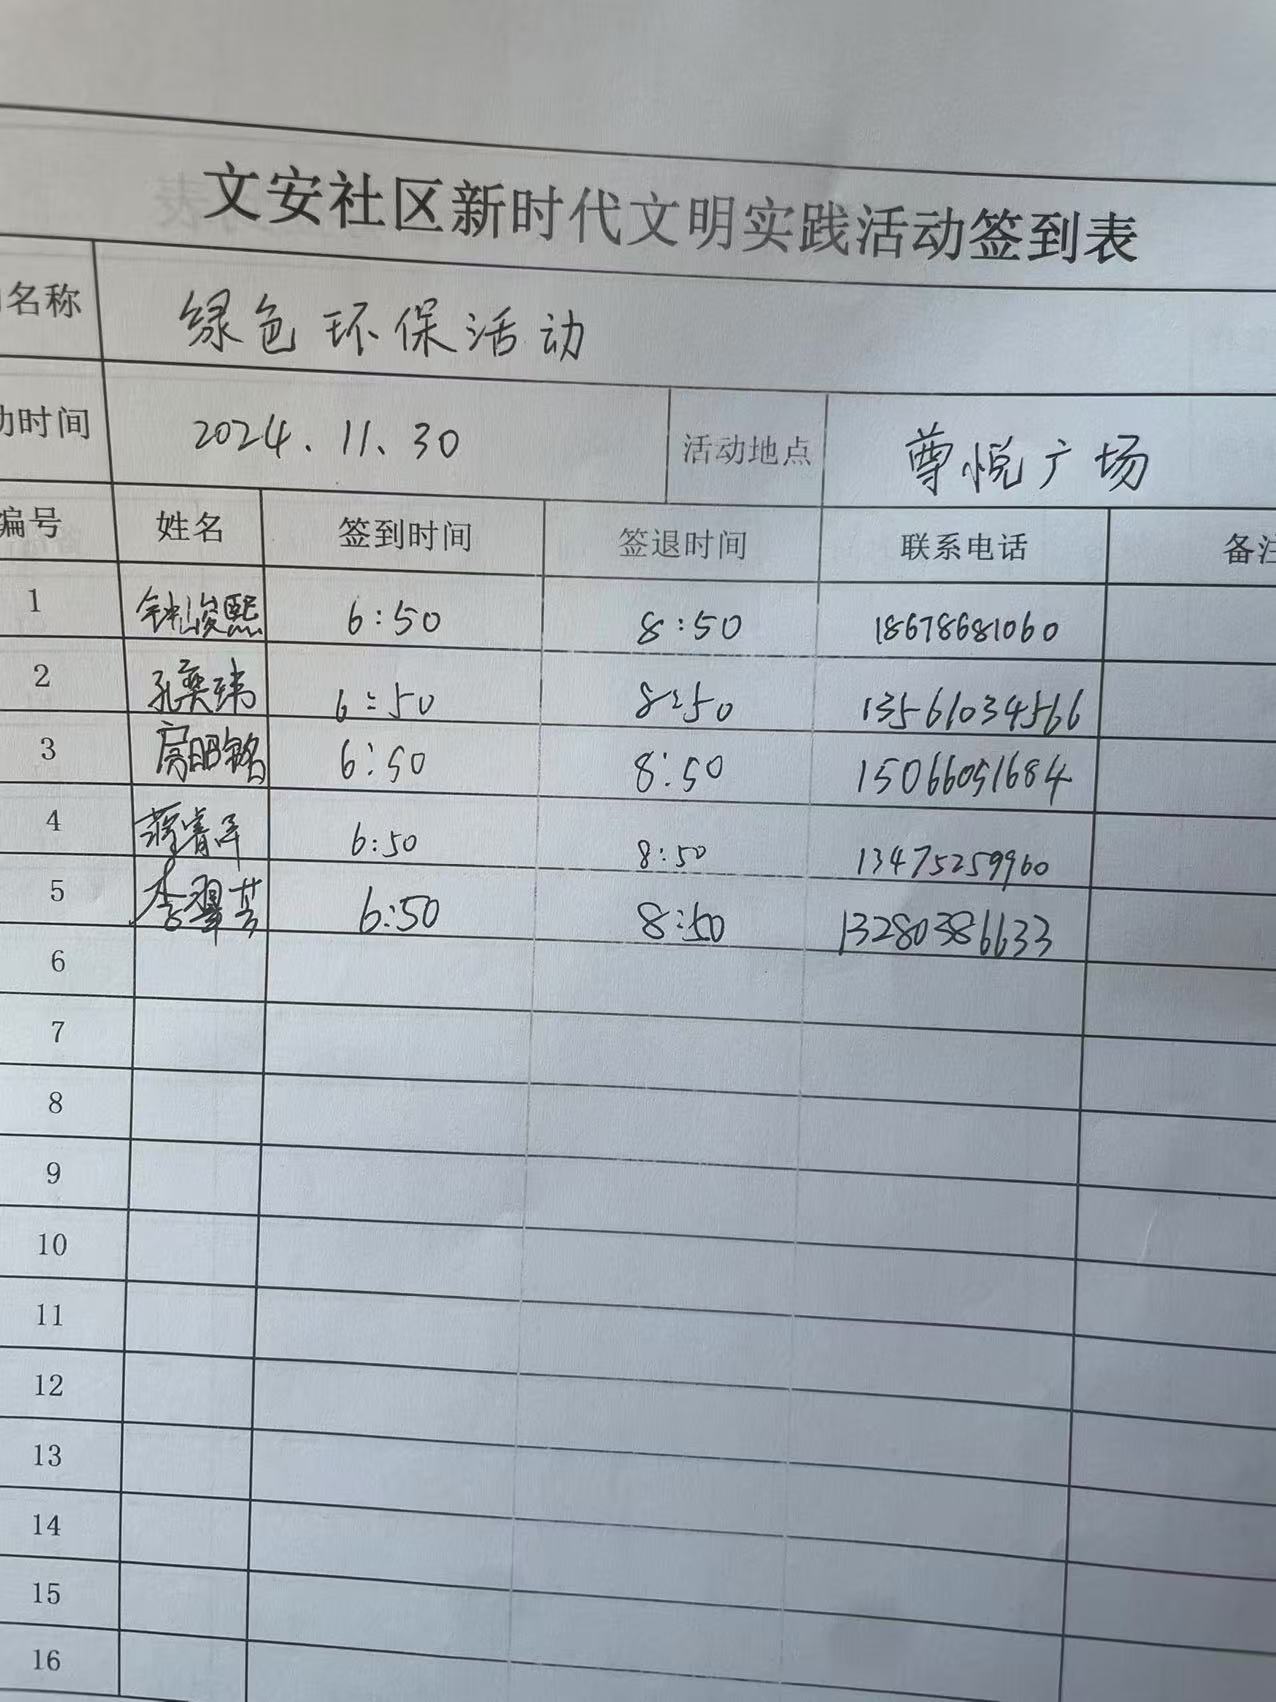 文安社区新时代文明实践活动签到表
名称 绿色环保活动
动时间 2024.11.30 活动地点 尊悦广场
编号 姓名 签到时间 签退时间 联系电话 备注
1 钟峻熙 6:50 8:50 18678681060
2 孔奕玮 6:50 8:50 13561034566
3 高昭铭 6:50 8:50 15066051684
4 6:50 8:50 13475259960
5 6:50 8:50 13280386633
6
7
8
9
10
11
12
13
14
15
16